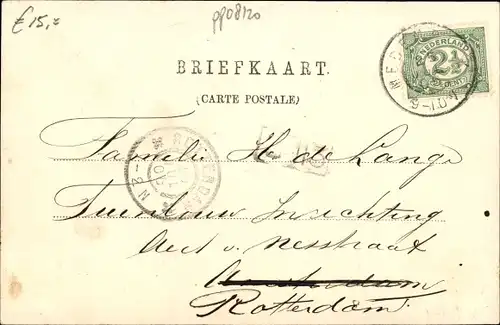 € 15,=
pp08120
BRIEFKAART.
(CARTE POSTALE)
NEDERLAND
2½
CENT
Familie H de Lange
Tuinbouw Inrichting
Aert v. Nesstraat
Amsterdam
Rotterdam.